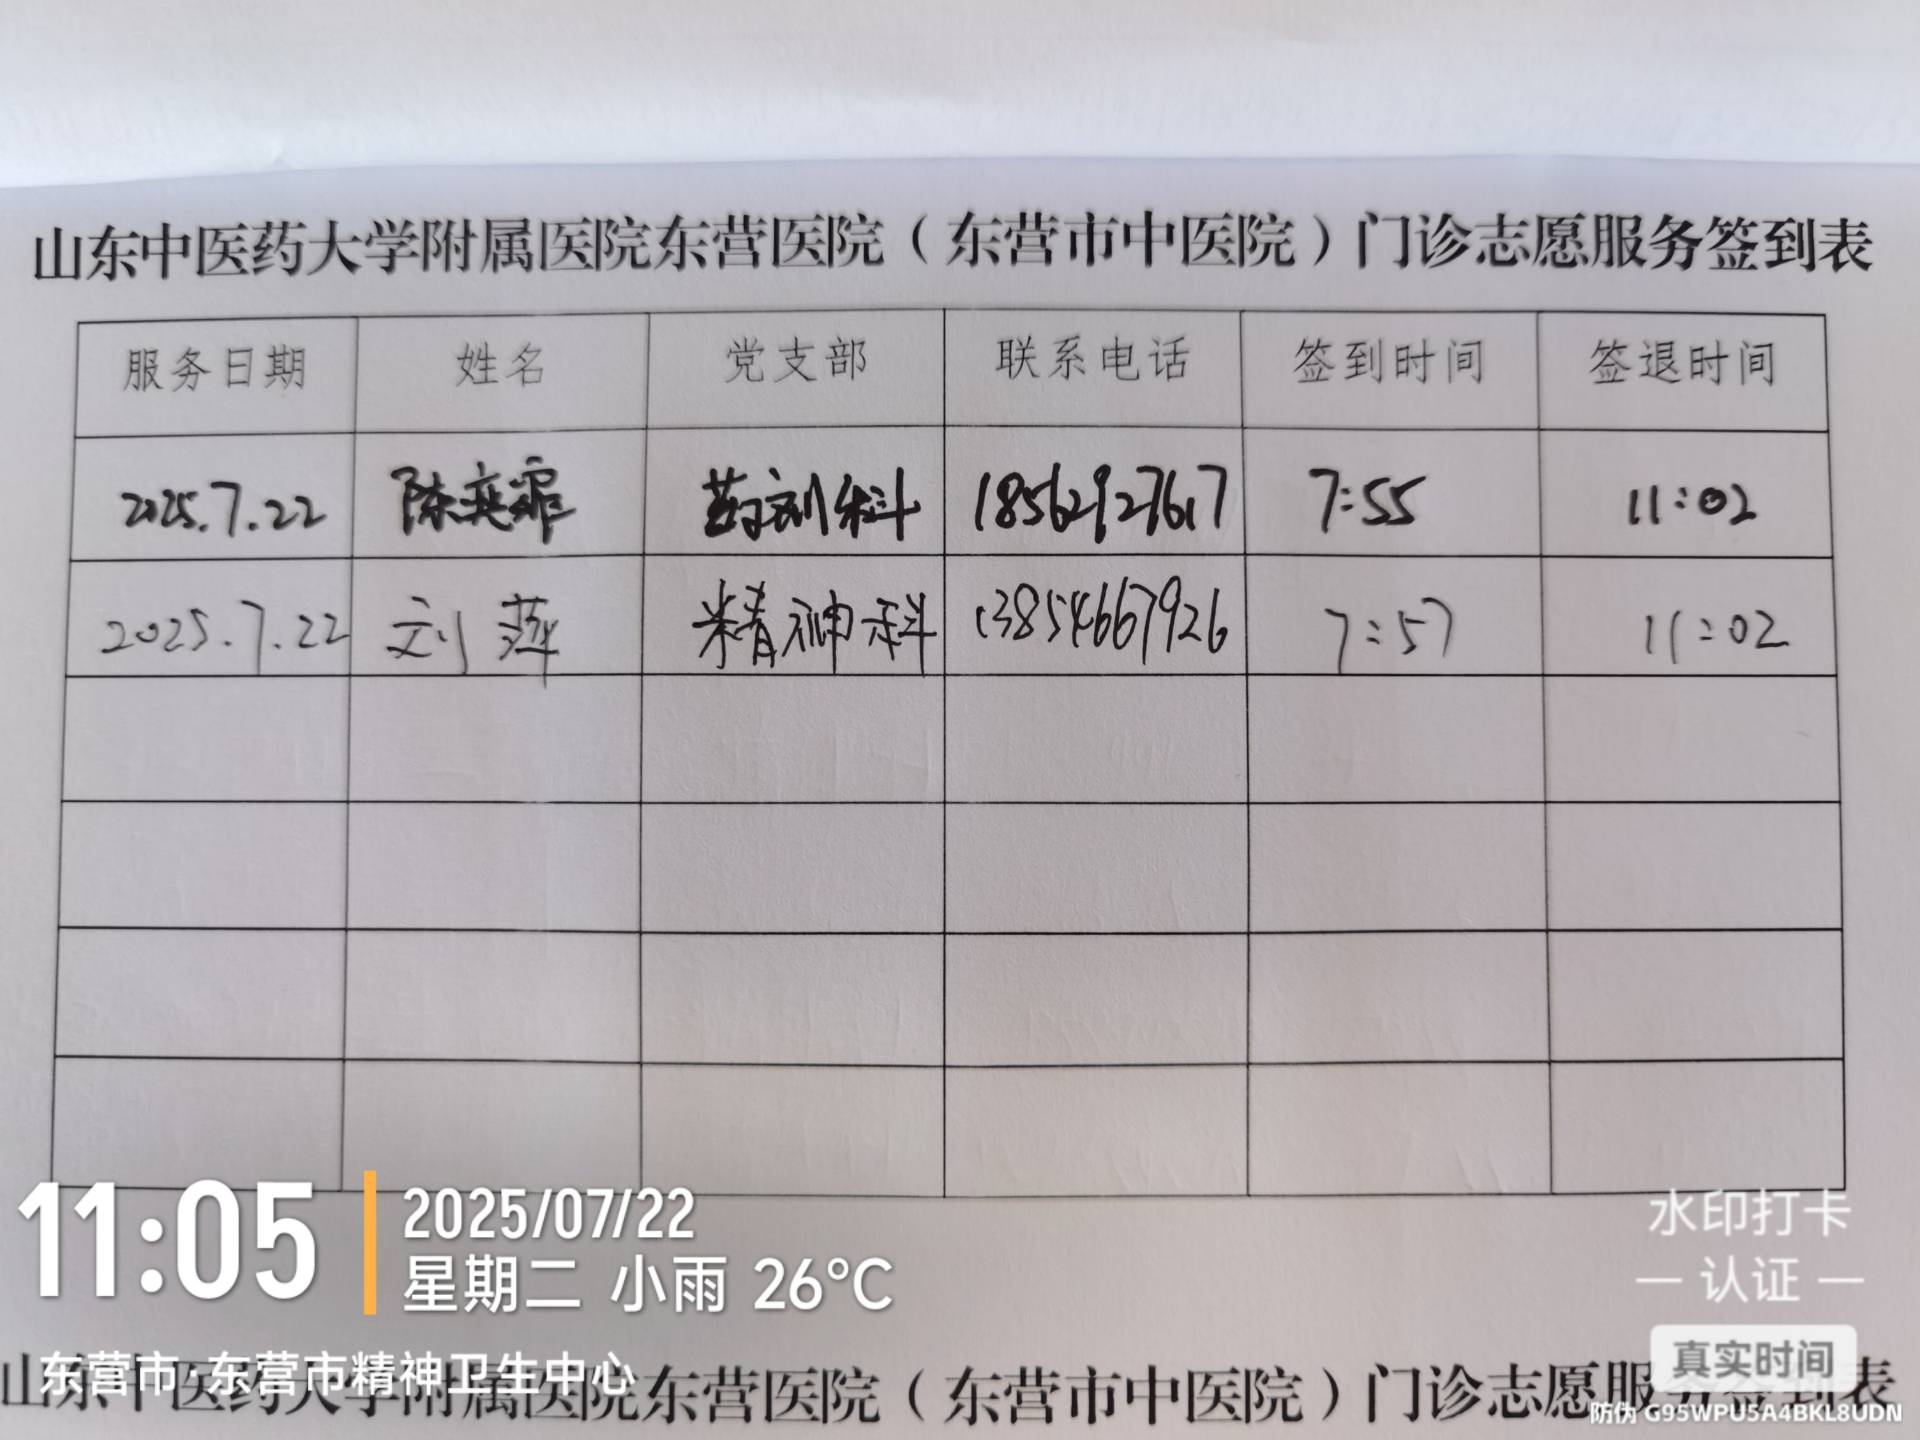 山东中医药大学附属医院东营医院（东营市中医院）门诊志愿服务签到表
服务日期 姓名 党支部 联系电话 签到时间 签退时间
2025.7.22 陈奕霏 药剂科 18562927617 7:55 11:02
2025.7.22 刘萍 精神科 13854667926 7:57 11:02
11:05
2025/07/22
星期二 小雨 26°C
水印打卡
认证
真实时间
东营市·东营市精神卫生中心
山东中医药大学附属医院东营医院（东营市中医院）门诊志愿服务签到表
防伪 G95WPU5A4BKL8UDN